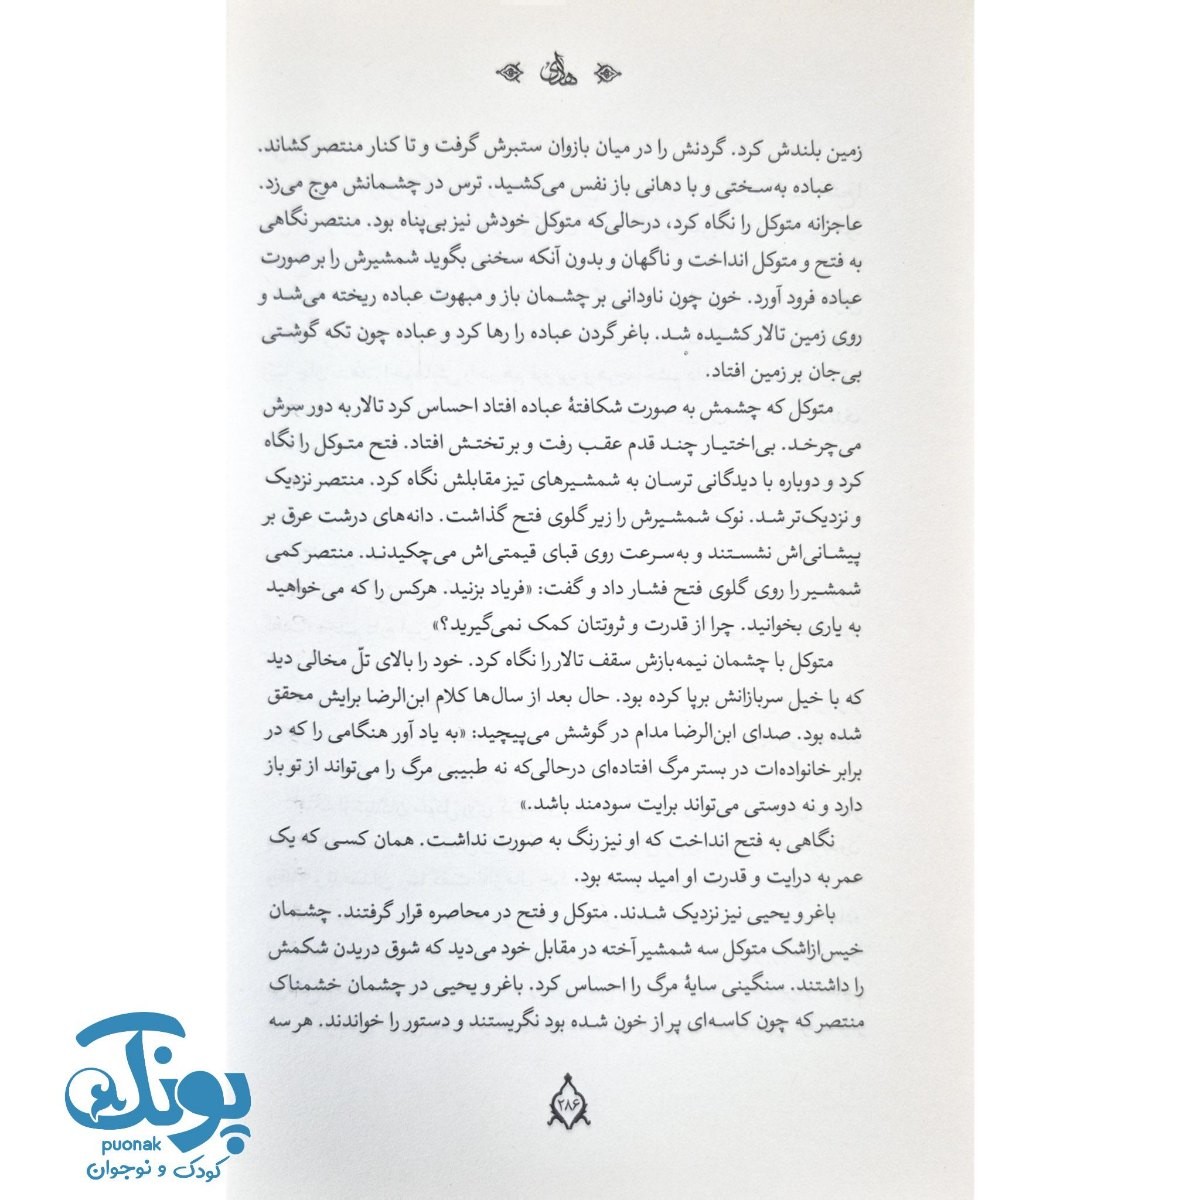 هادی
زمین بلندش کرد. گردنش را در میان بازوان ستبرش گرفت و تا کنار منتصر کشاند.
عباده به‌سختی و با دهانی باز نفس می‌کشید. ترس در چشمانش موج می‌زد.
عاجزانه متوکل را نگاه کرد، درحالی‌که متوکل خودش نیز بی‌پناه بود. منتصر نگاهی
به فتح و متوکل انداخت و ناگهان و بدون آنکه سخنی بگوید شمشیرش را بر صورت
عباده فرود آورد. خون چون ناودانی بر چشمان باز و مبهوت عباده ریخته می‌شد و
روی زمین تالار کشیده شد. باغر گردن عباده را رها کرد و عباده چون تکه گوشتی
بی‌جان بر زمین افتاد.
متوکل که چشمش به صورت شکافتهٔ عباده افتاد احساس کرد تالار به دور سرش
می‌چرخد. بی‌اختیار چند قدم عقب رفت و بر تختش افتاد. فتح متوکل را نگاه
کرد و دوباره با دیدگانی ترسان به شمشیرهای تیز مقابلش نگاه کرد. منتصر نزدیک
و نزدیک‌تر شد. نوک شمشیرش را زیر گلوی فتح گذاشت. دانه‌های درشت عرق بر
پیشانی‌اش نشستند و به‌سرعت روی قبای قیمتی‌اش می‌چکیدند. منتصر کمی
شمشیر را روی گلوی فتح فشار داد و گفت: «فریاد بزنید. هرکس را که می‌خواهید
به یاری بخوانید. چرا از قدرت و ثروتتان کمک نمی‌گیرید؟»
متوکل با چشمان نیمه‌بازش سقف تالار را نگاه کرد. خود را بالای تلّ مخالی دید
که با خیل سربازانش برپا کرده بود. حال بعد از سال‌ها کلام ابن‌الرضا برایش محقق
شده بود. صدای ابن‌الرضا مدام در گوشش می‌پیچید: «به یاد آور هنگامی را که در
برابر خانواده‌ات در بستر مرگ افتاده‌ای درحالی‌که نه طبیبی مرگ را می‌تواند از تو باز
دارد و نه دوستی می‌تواند برایت سودمند باشد.»
نگاهی به فتح انداخت که او نیز رنگ به صورت نداشت. همان کسی که یک
عمر به درایت و قدرت او امید بسته بود.
باغر و یحیی نیز نزدیک شدند. متوکل و فتح در محاصره قرار گرفتند. چشمان
خیس‌ازاشک متوکل سه شمشیر آخته در مقابل خود می‌دید که شوق دریدن شکمش
را داشتند. سنگینی سایهٔ مرگ را احساس کرد. باغر و یحیی در چشمان خشمناک
منتصر که چون کاسه‌ای پر از خون شده بود نگریستند و دستور را خواندند. هر سه
۲۸۶
پونک
puonak
کودک و نوجوان